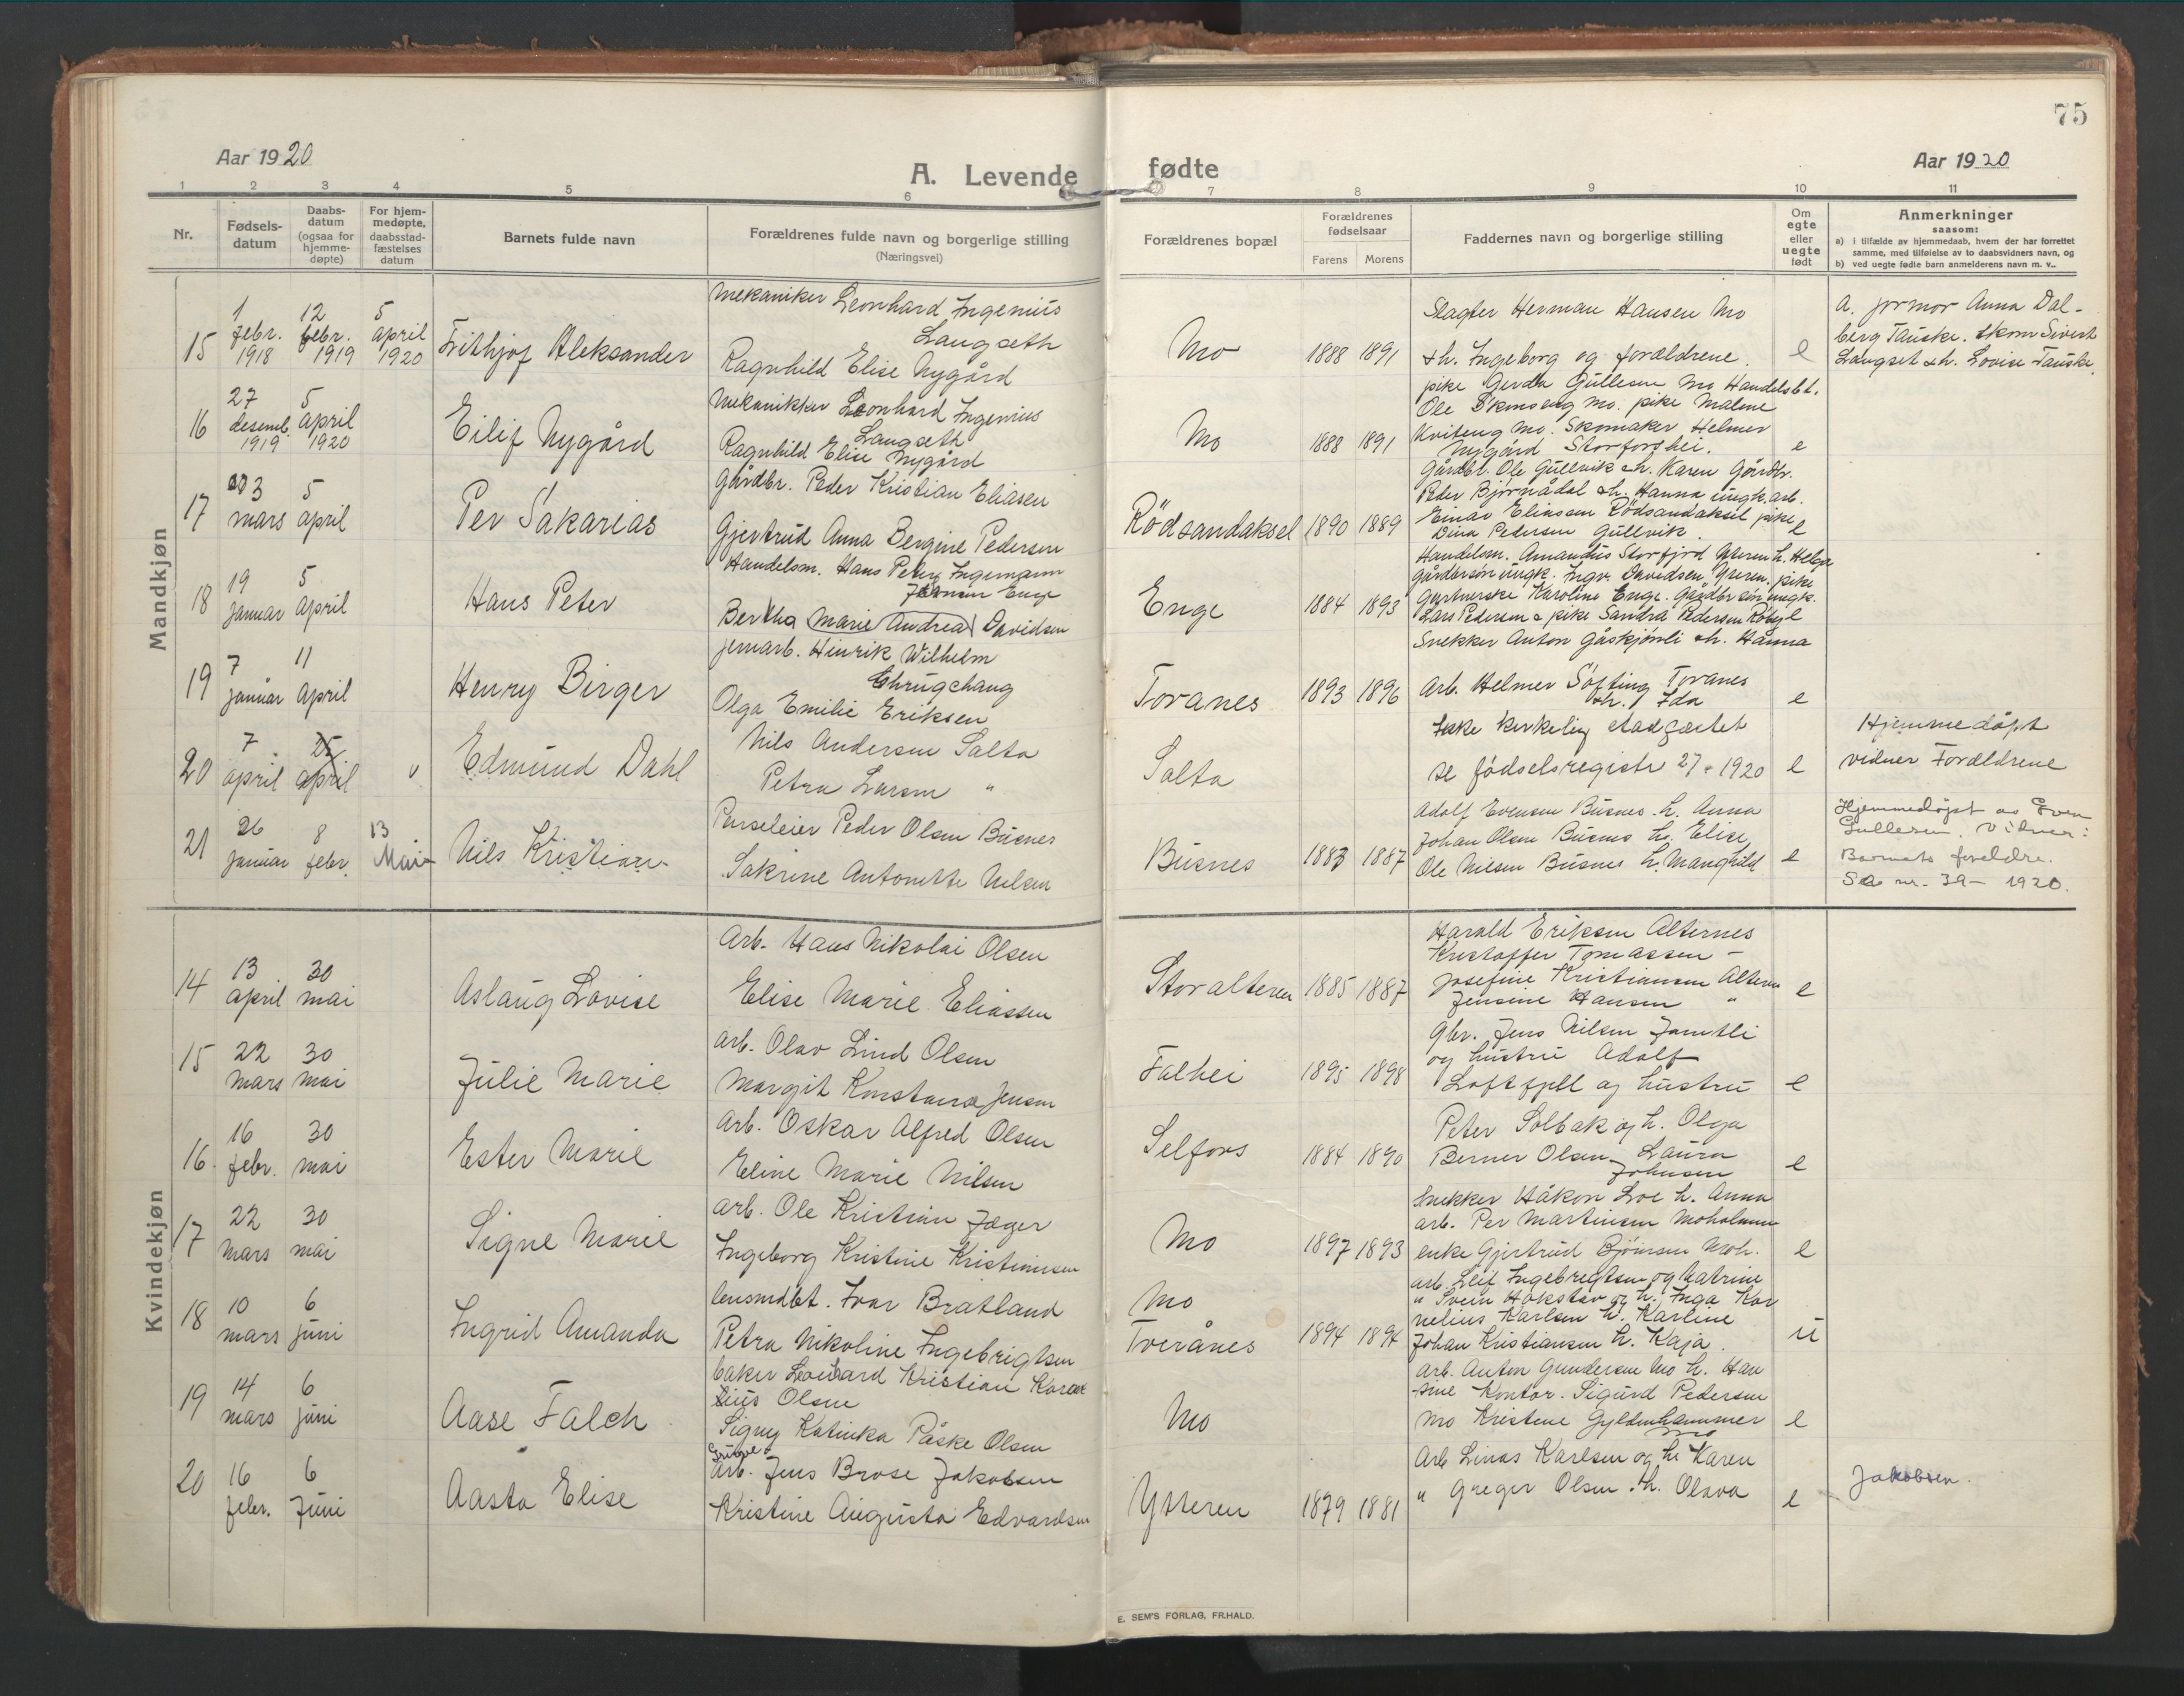 75
Aar 1920
A. Levende fødte
Aar 1920
1 2 3 4 5 6 7 8 9 10 11
Nr.
Fødsels-
datum
Daabs-
datum
(ogsaa for
hjemme-
døpte)
For hjem-
medøpte,
daabsstad-
fæstelses
datum
Barnets fulde navn
Forældrenes fulde navn og borgerlige stilling
(Næringsvei)
Forældrenes bopæl
Forældrenes
fødselsaar
Farens Morens
Faddernes navn og borgerlige stilling
Om
egte
eller
uegte
født
Anmerkninger
saasom:
a) i tilfælde av hjemmedaab, hvem der har forrettet
samme, med tilføielse av to daabsvidners navn, og
b) ved uegte fødte barn anmelderens navn m. v..
Mandkjøn
15
1
febr.
1918
12
febr.
1919
5
april
1920
Frithjof Aleksander
Mekaniker Leonhard Ingenius
Langseth
Ragnhild Elise Nygård
Mo
1888 1891
Slagter Herman Hansen Mo
&h. Ingeborg og forældrene.
e
a. jormor Anna Dal-
berg Tauske. Skom Sivert
Langset &h. Lovise Tauske.
16
27
desemb.
1919
5
april
1920
Eilif Nygård
Mekanikker Leonhard Ingenius
Langseth
Ragnhild Elise Nygård
Mo
1888 1891
pike Gerda Gullesen Mo Handelsbt.
Ole Skonseng Mo. pike Malene
Kviteng Mo. Skomaker Helmer
Nygård Storforshei.
e
17
3
mars
5
april
Per Sakarias
Gårdbr. Peder Kristian Eliasen
Gjertrud Anna Bergine Pedersen
Rødsandaksel
1890 1889
Gårdbr. Ole Gullvik &h. Karen Gårdbr.
Peder Bjørnådal &h. Hanna ungk. arb.
Einar Eliassen Rødsandaksel pike
Dina Pedersen Gullvik.
e
18
19
januar
5
april
Hans Peter
Handelsm. Hans Peter Ingemann
Jensen Enge
Bertha Marie Andrea Davidsen
Enge
1884 1893
Handelsm. Amandus Storfjord Ytteren h. Helga
gårdbrsøn ungk. Ingv. Davidsen, Ytteren. pike
Gartnerske Karoline Enge. Gårdbr søn ungk.
Lars Pedersen & pike Sandra Pedersen Røberg
e
19
7
januar
11
april
Henry Birger
jernarb. Hinrik Wilhelm
Chrugchang
Olga Emilie Eriksen
Toranes
1893 1896
Snekker Anton Gåskjønli &h. Hanna
Arb. Helmer Søfting Toranes
&h. Ida
e
20
7
april
25
april
v
Edmund Dahl
Nils Andersen Salta
Petra Larsen "
Salta
Ikke kirkelig stadfæstet
se fødselsregistr 27-1920
e
Hjemmedøpt
vidner Forældrene
21
26
januar
8
febr.
13
Mai
Nils Kristian
Parseleier Peder Olsen Busnes
Sakrine Antonette Nilsen
Busnes
1883 1887
Adolf Evensen Busnes. h. Anna
Johan Olsen Busnes h. Elise
Ole Nilsen Busnes h. Manghild
e
Hjemmedøpt av Even
Gullesen. Vidner:
Barnets foreldre.
Se nr. 39- 1920.
Kvindekjøn
14
13
april
30
mai
Aslaug Lovise
Arb. Hans Nikolai Olsen
Elise Marie Eliassen
Storalteren
1885 1887
Harald Eriksen Alternes
Kristoffer Tomassen -
Josefine Kristiansen Altern
Jensine Hansen "
e
15
22
mars
30
mai
Julie Marie
arb. Olav Lind Olsen
Margit Konstanse Jensen
Falhei
1895 1898
Gbr. Jens Nilsen Jamtli
og hustru Adolf
Loftfjell og hustru
e
16.
16
febr.
30
mai
Ester Marie
arb. Oskar Alfred Olsen
Eline Marie Nilsen
Selfors
1884 1890
Peter Solbak og h. Olga
Berner Olsen Laura
Johnsen
e
17
22
mars
30
mai
Signe Marie
arb. Ole Kristian Jæger
Ingeborg Kristine Kristiansen
Mo
1897 1893
Snekker Håkon Loe h. Anna
arb. Per Martinsen Moholmen
enke Gjertrud Bjørnsen Moh.
e
18
10
mars
6
juni
Ingrid Amanda
lensmdbt. Ivar Bratland
Petra Nikoline Ingebrigtsen
Mo
Tverånes
1894 1894
arb. Leif Ingebregtsen og Katrine
" Svein Hakstav og h. Inga Kor
nelius Karlsen h. Karline
Johan Kristiansen h. Kaja.
u
19
14
mars
6
juni
Aase Falch
baker Leonhard Kristian Korne
lius Olsen
Signy Katinka Påske Olsen
Mo
arb. Anton Gundersen Mo h. Han
sine Kontor. Sigurd Pedersen
Mo Kristine Gyldenhammer
Mo
e
20
16
febr.
6
Juni
Aasta Elise
Grube
arb. Jens Brose Jakobsen
Kristine Augusta Edvardsen
Ytteren
1879 1881
Arb Linas Karlsen og h. Karen
" Greger Olsen &h. Olava
e
Jakobsen.
E. SEM'S FORLAG, FR.HALD.